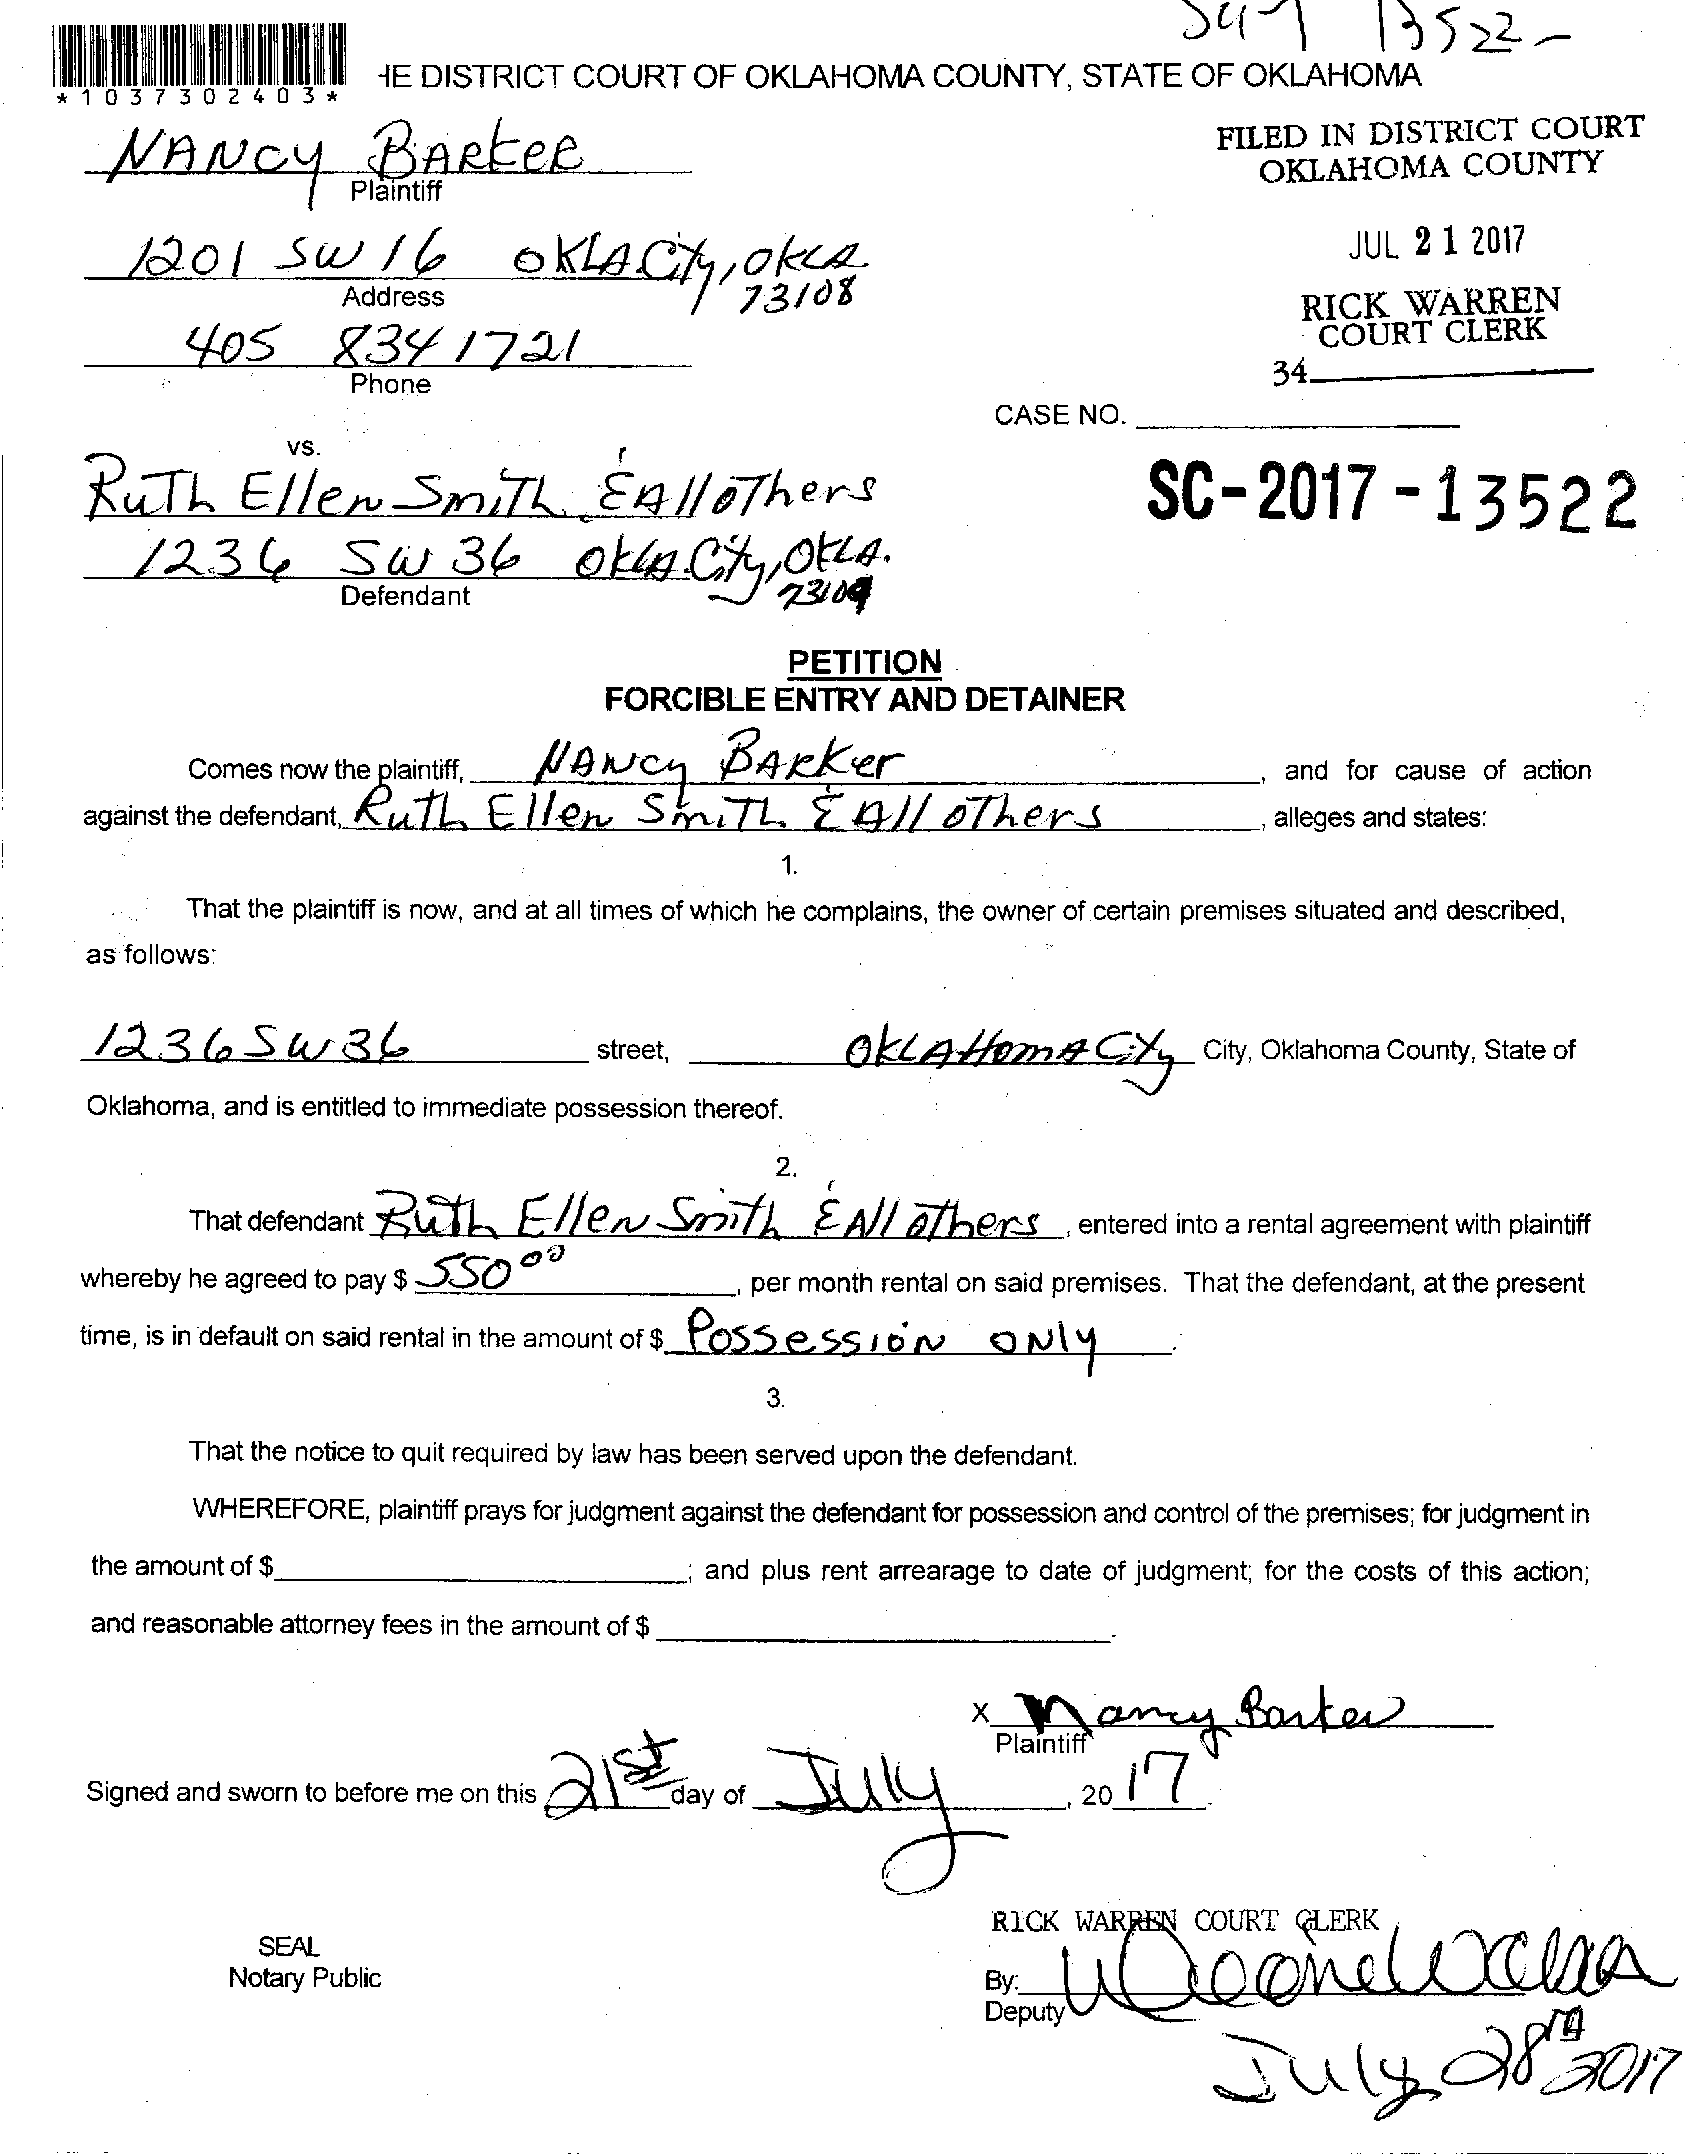 13522-
*1037302403*
HE DISTRICT COURT OF OKLAHOMA COUNTY, STATE OF OKLAHOMA
NANCY BARKER
Plaintiff
FILED IN DISTRICT COURT
OKLAHOMA COUNTY
JUL 21 2017
RICK WARREN
COURT CLERK
34
1201 SW 16 OKLA.City, OKLA
73108
Address
405 834 1721
Phone
CASE NO.
SC-2017-13522
vs.
Ruth Ellen Smith & All oThers
1236 SW 36 Okla.City, OKLA.
73109
Defendant
PETITION
FORCIBLE ENTRY AND DETAINER
Comes now the plaintiff, NANCY BARKer, and for cause of action
against the defendant, Ruth Ellen SmiTh & All oThers, alleges and states:
1.
That the plaintiff is now, and at all times of which he complains, the owner of certain premises situated and described,
as follows:
1236 SW 36 street, OKLAHomA CiTy City, Oklahoma County, State of
Oklahoma, and is entitled to immediate possession thereof.
2.
That defendant Ruth Ellen Smith & All oThers, entered into a rental agreement with plaintiff
whereby he agreed to pay $ 550 00, per month rental on said premises. That the defendant, at the present
time, is in default on said rental in the amount of $ Possession ONly.
3.
That the notice to quit required by law has been served upon the defendant.
WHEREFORE, plaintiff prays for judgment against the defendant for possession and control of the premises; for judgment in
the amount of $; and plus rent arrearage to date of judgment; for the costs of this action;
and reasonable attorney fees in the amount of $.
X Nancy Barker
Plaintiff
Signed and sworn to before me on this 21st day of July, 2017.
SEAL
Notary Public
RICK WARREN COURT CLERK
By:
Deputy
July 28th 2017